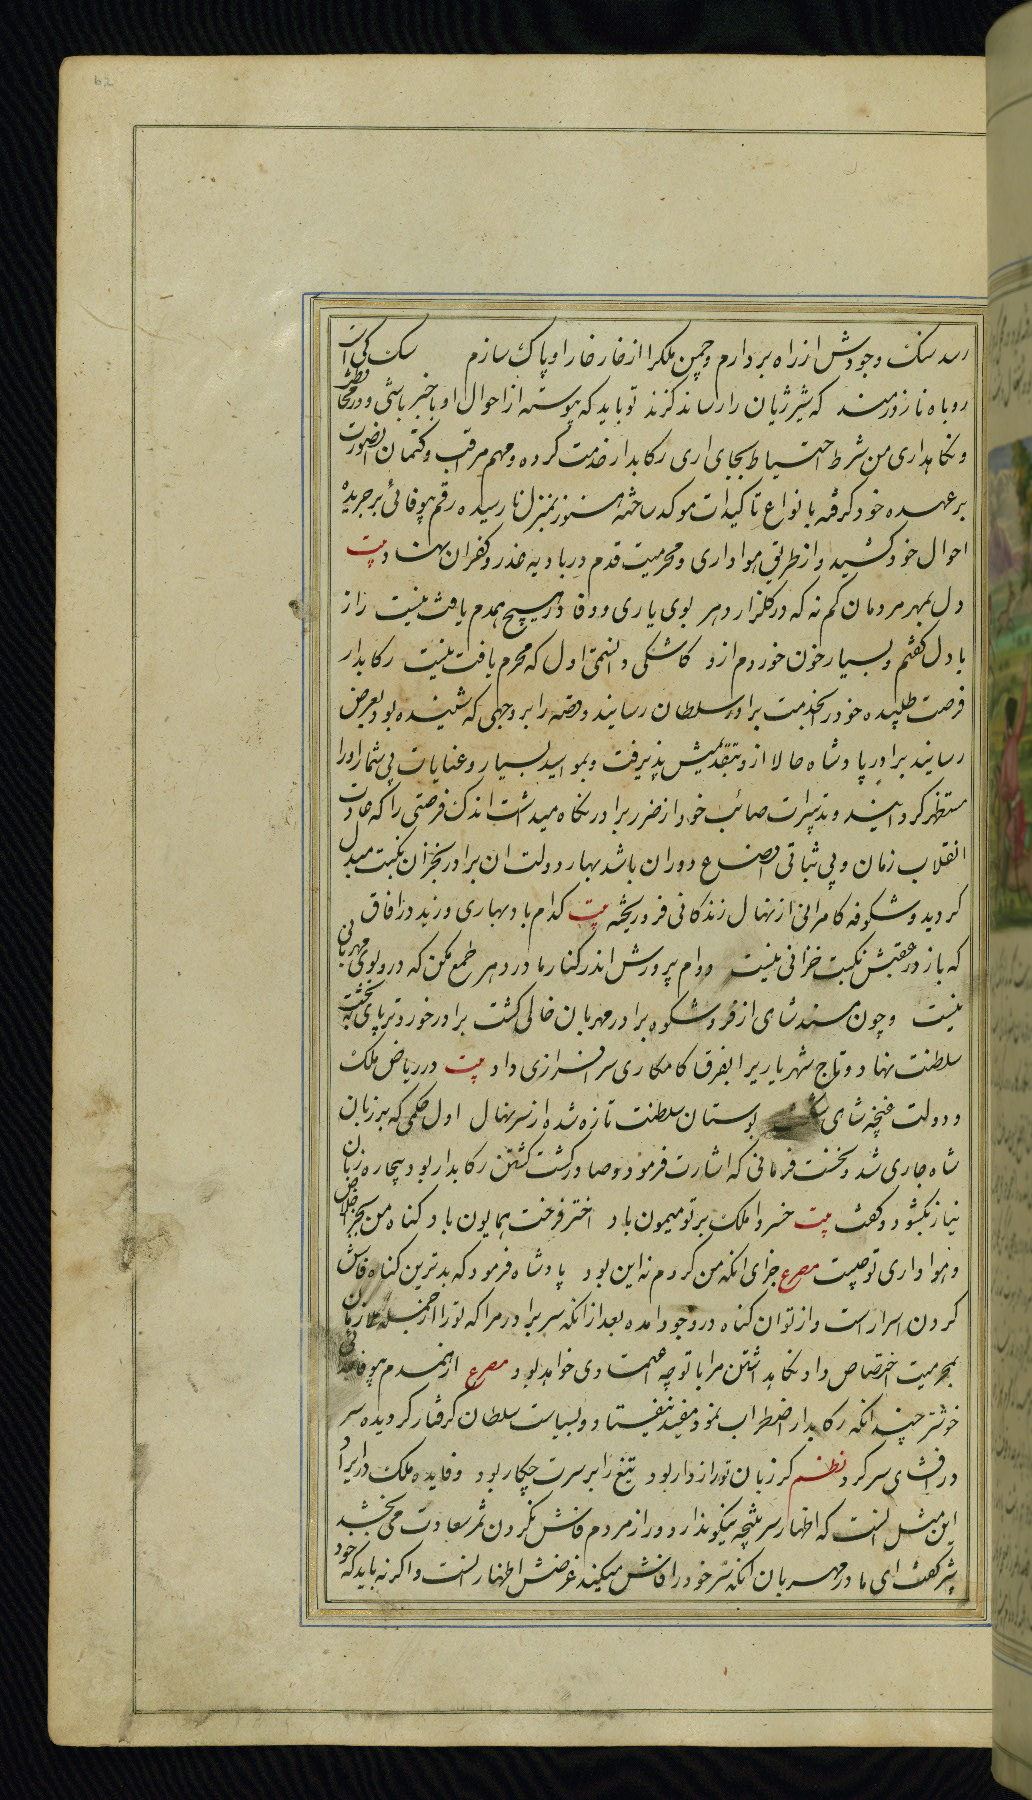 رسد سنک وجودش از راه بردارم و چمن ملکرا از خار خار او پاک سازم سک کی است
روباه نازورمند که شیر ژیان را رساند کزند تو باید که پیوسته از احوال او باخبر باشی و در محافظت
و نکاهداری من شرط احتیاط بجای اری رکابدار خدمت کرده و مهم مرافب و کتمان انصورت
بر عهده خود کرفته بانواع تاکیدات موکد ساخته هنوز بمنزل نا رسیده رقم بیوفائی بر جریده
احوال خود کشید و از طریق هواداری و محرمیت قدم در بادیه غدر و کفران نهاد بیت
دل بمهر مردمان کم نه که در کلزار دهر بوی یاری و وفا در هیچ همدم یافت نیست راز
با دل کفتم و بسیار خون خوردم ازو کاشکی دانستمی اول که محرم یافت نیست رکابدار
فرصت طلبیده خود را بخدمت برادر سلطان رسانید و قصه را بر وجهی که شنیده بود بعرض
رسانید برادر پادشاه حالا ازو بتقدیمش پذیرفت و بمواسید بسیار و عنایات بی شمار اورا
مستظهر کردانید و تدبیرات صائب خود از ضرر برادر نکاه میداشت اندک فرصتی را که عادت
انقلاب زمان و بی ثباتی اوضاع دوران باشد بهار دولت ان برادر بخزان نکبت مبدل
کردید و شکوفه کامرانی از نهال زندکانی فرو ریخته بیت کدام باد بهاری وزید در افاق
که باز در عقبش نکبت خزانی نیست دوام پرورش اندر کنار مادر دهر طمع مکن که در و بوی مهربانی
نیست و چون مسند شاهی از فر و شکوه برادر مهربان خالی کشت برادر خورد تر پای بتخت
سلطنت نهاد و تاج شهریاریرا بفرق کامکاری سرافرازی داد بیت در ریاض ملک
و دولت غنچه شاهی بوستان سلطنت تازه شد از سر نهال اول حکمی که بر زبان
شاه جاری شد و نخست فرمانی که اشارت فرمود و صادر کشت کشتن رکابدار بود بیچاره زبان
نیاز بکشود و کفت بیت خسروا ملک بر تو میمون باد اختر فرخت همایون باد کناه من بجز اخلاص
و هواداری تو چیست مصرع جزای انکه من کردم نه این بود پادشاه فرمود که بدترین کناه فاش
کردن اسرار است و از تو ان کناه در وجود امده بعد از انکه سر برادر مرا که تو را از جمله ملازمان
بمحرمیت اختصاص داد نکاه داشتن مرا با تو چه اعتمادی خواهد بود مصرع از همدم بیوفا جدائی
خوشتر چندانکه رکابدار اضطراب نمود مفید نیفتاد و بسیاست سلطان کرفتار کردیده سر
در افشای سر کرد نظم کر زبان تو رازدار بودی تیغ را بر سرت چکار بودی و فایده ملک در ایراد
این مثل انست که اظهار سر نتیجه نیکو ندارد و راز مردم فاش نکردن ثمر سعادت می بخشد
شیر کفت ای مادر مهربان انکه سر خود را فاش میکند غرضش اظهار انست و اکر نه باید که خود